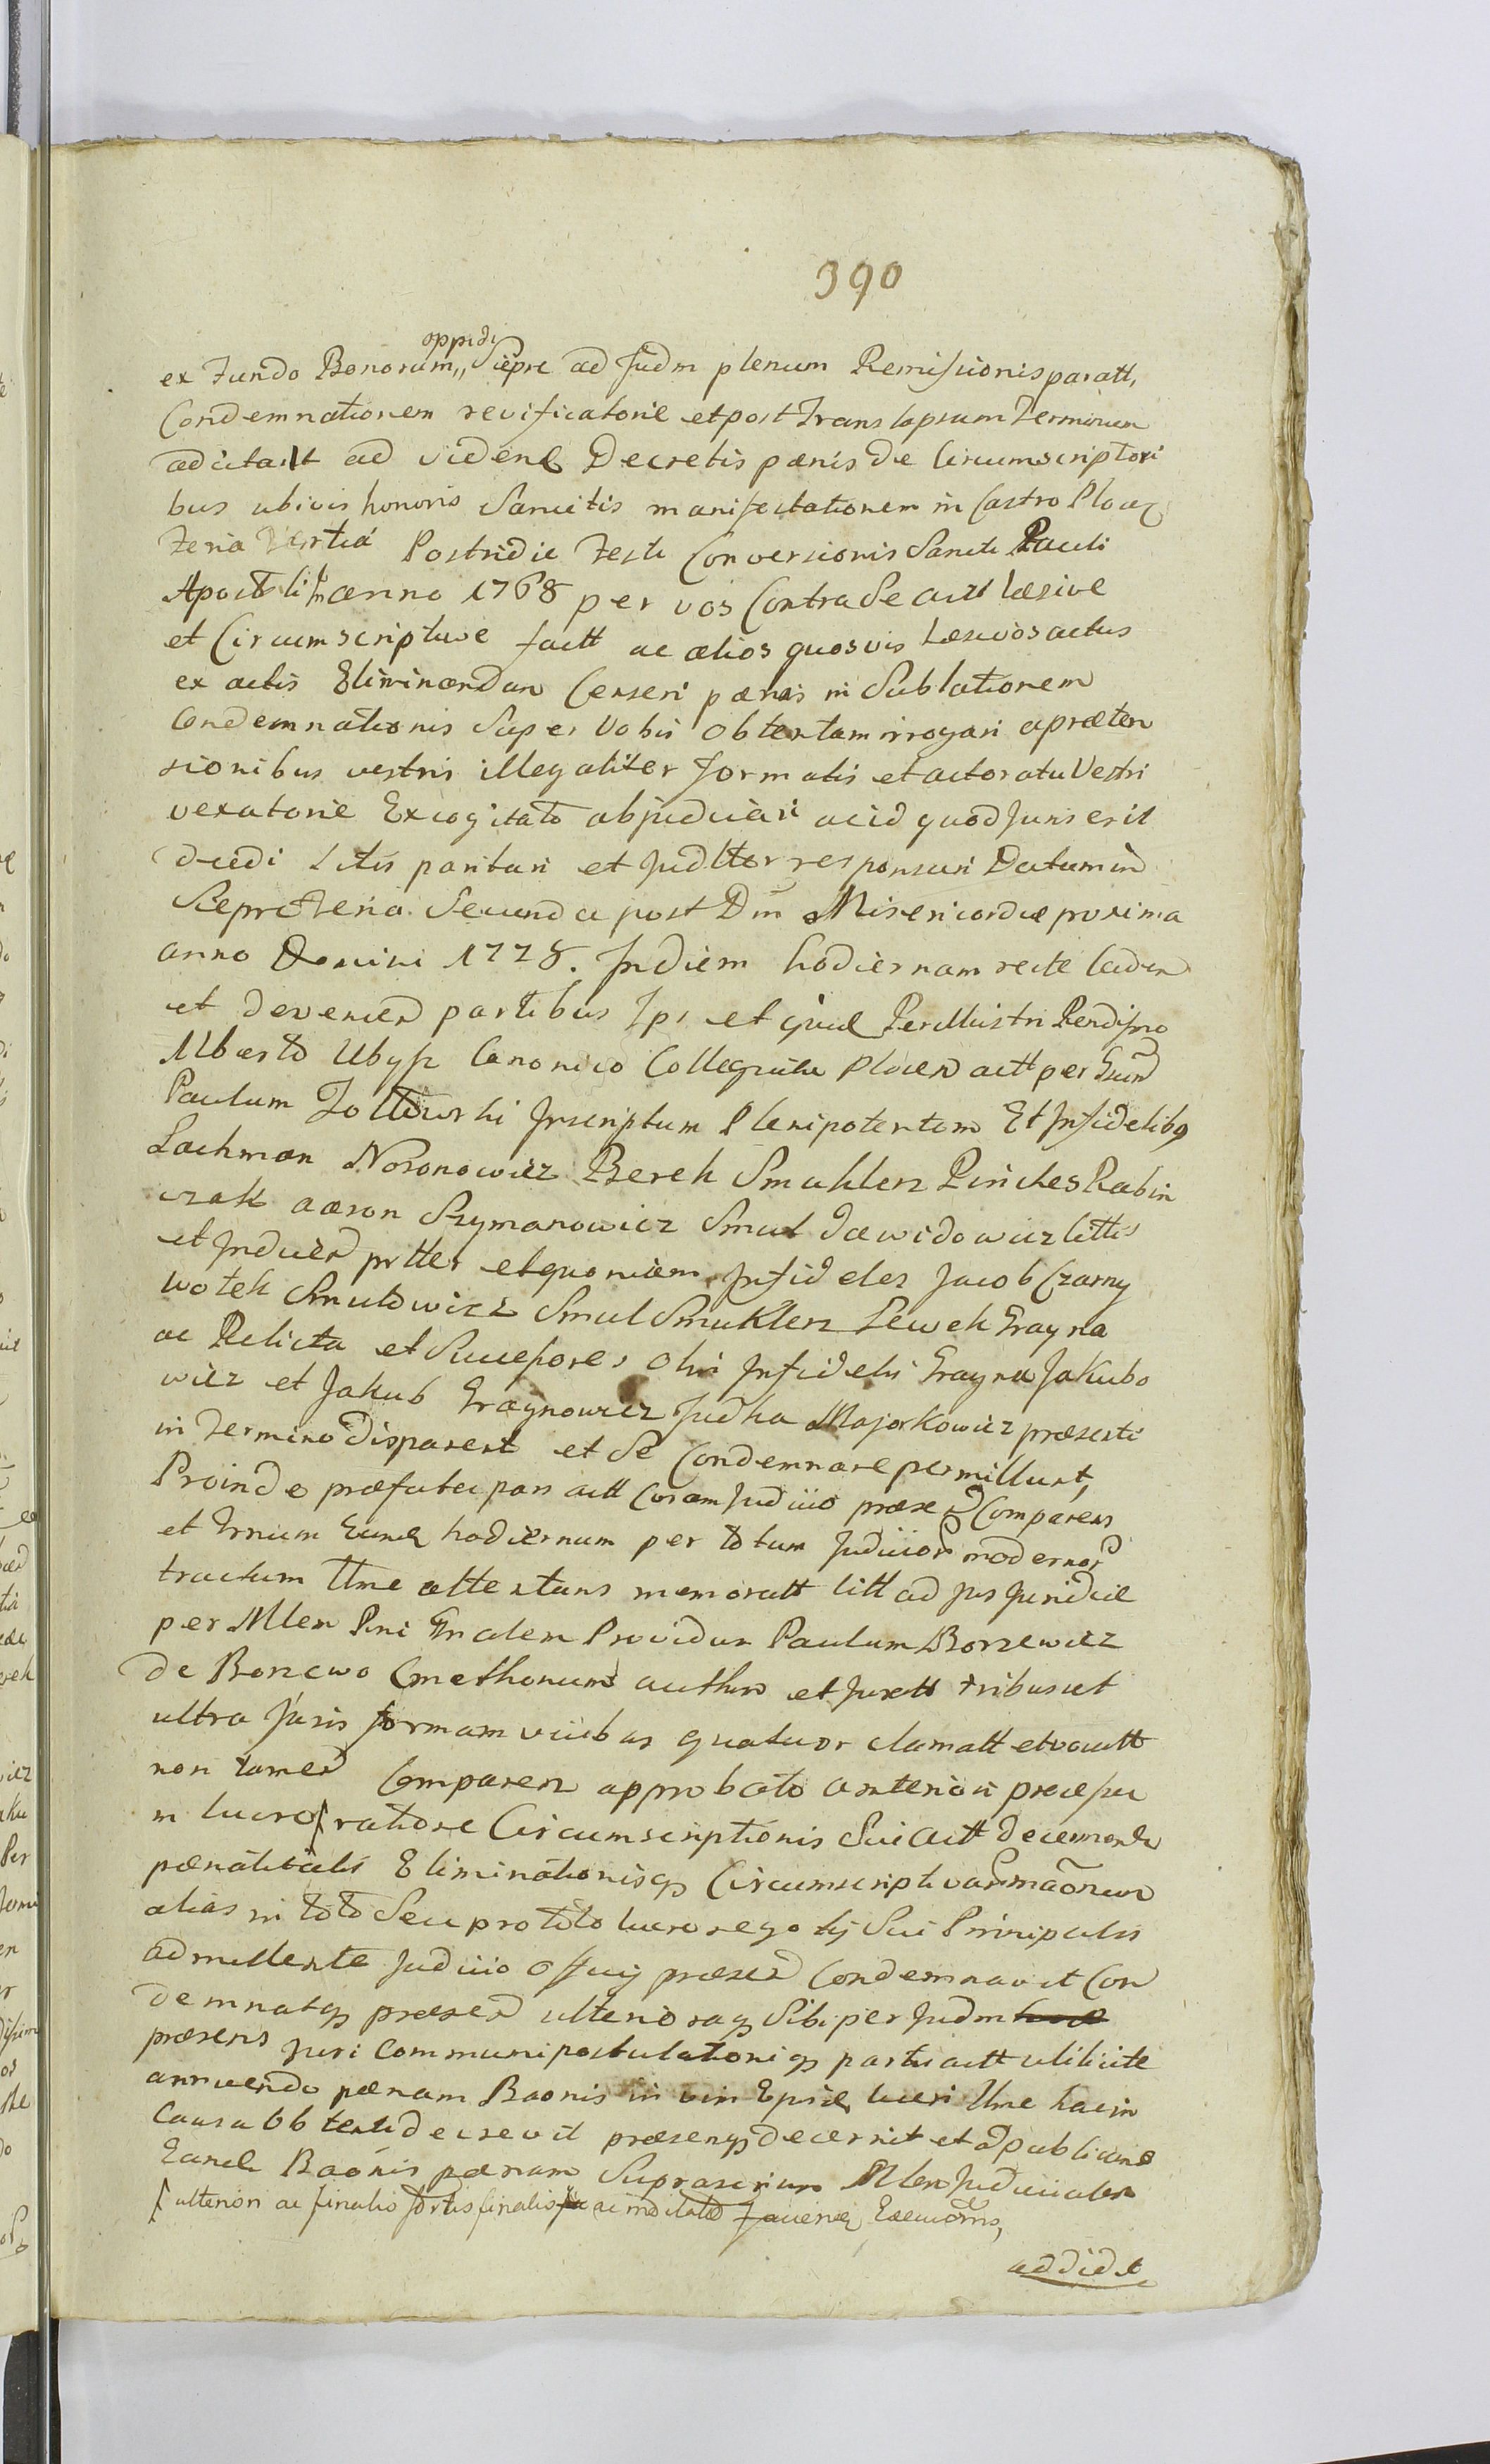 390
oppidi
ex Fundo Bonorum,, Siepre ad Judm plenum Remissionis paratt,
Condemnationem revificatorie et post Translapsum Terminum
adcitarit ad vidend Decretis pœnis de Circumscriptori
bus ubivis honoris Sancitis manifestationem in Castro Plocz
Feria Tertia Postridie Festi Conversionis Sancti Pauli
Apostoli anno 1768 per vos Contra Se actt læsive
et Circumscriptive factt ac alios quosvis læsivos actus
ex actis Eliminandam Censeri pænas in Sublationem
Condemnationis Super Vobis obtentam irrogari a præten
sionibus vestris illegaliter formatis et actoratu Vestri
vexatorie Excogitato abjudicari ac id quod Juris erit
dicedi Litis paritari et Juditter responsuri Datum in
Siepre Feria Secunda post Dm Misericordiæ proxima
anno Domini 1778. In diem hodiernam recte caden
et devenien partibus Ips et quid Perillustri Rendissmo
Alberto Ubysz Canonico Collegiatæ Plocen actt per Gnd
Paulum Zoltowski Inscriptum Plenipotentem Et Infidelibq
Lachman Nosonowicz Berek Smuklerz Pinches Rabin
czak aaron Szymanowicz Smul Dawidowicz littis
et Inducen pttes et quoniam Infideles Jacob Czarny
Wotek Smulowicz Smul Smuklerz Lewek Grayna
ac Relicta et Successores Olim Infidelis Grayna Jakubo
wicz et Jakub Graynowicz Judka Majorkowicz præsenti
in Termino disparent et Se Condemnare permittunt,
Proinde præfata pars actt Coram Judicio præsen Comparens
et Trnum Eund hodiernum per totum Judicior modernor
tractum Ttne attentans memoratt litt ad jus juridice
per Mlem Rni Gnalem Providum Paulum Borzewicz
de Borzewo Cmethonum authm et Juratt tribus et
ultra Juris formam vicibus quatuor clamatt et vocatt
non tamen Comparen approbato anteriori processu
in lucro ratione Circumscriptionis Sui Actt decernenda
pænalitatis Eliminationisq Circumscriptivar
alias in toto Seu pro toto lucro negotij Sui Principalis
admittente Judicio Officij præsen Condemnavit Con
demnatq præsen ulterioraq Sibi per Judm
præsens Juri Communi postulationiq partis actt utilicite
annuendo pænam Baonis in vim Epsid lucri Ttne hac in
Causa Obtent decrevit præsensq decernit et ad publicand
Eand Baonis pænam Suprascrium Mlem Judicialem
ulteriori ac finalis fortis finalis ac meditatæ facienæ Eaecuonis,
addidit